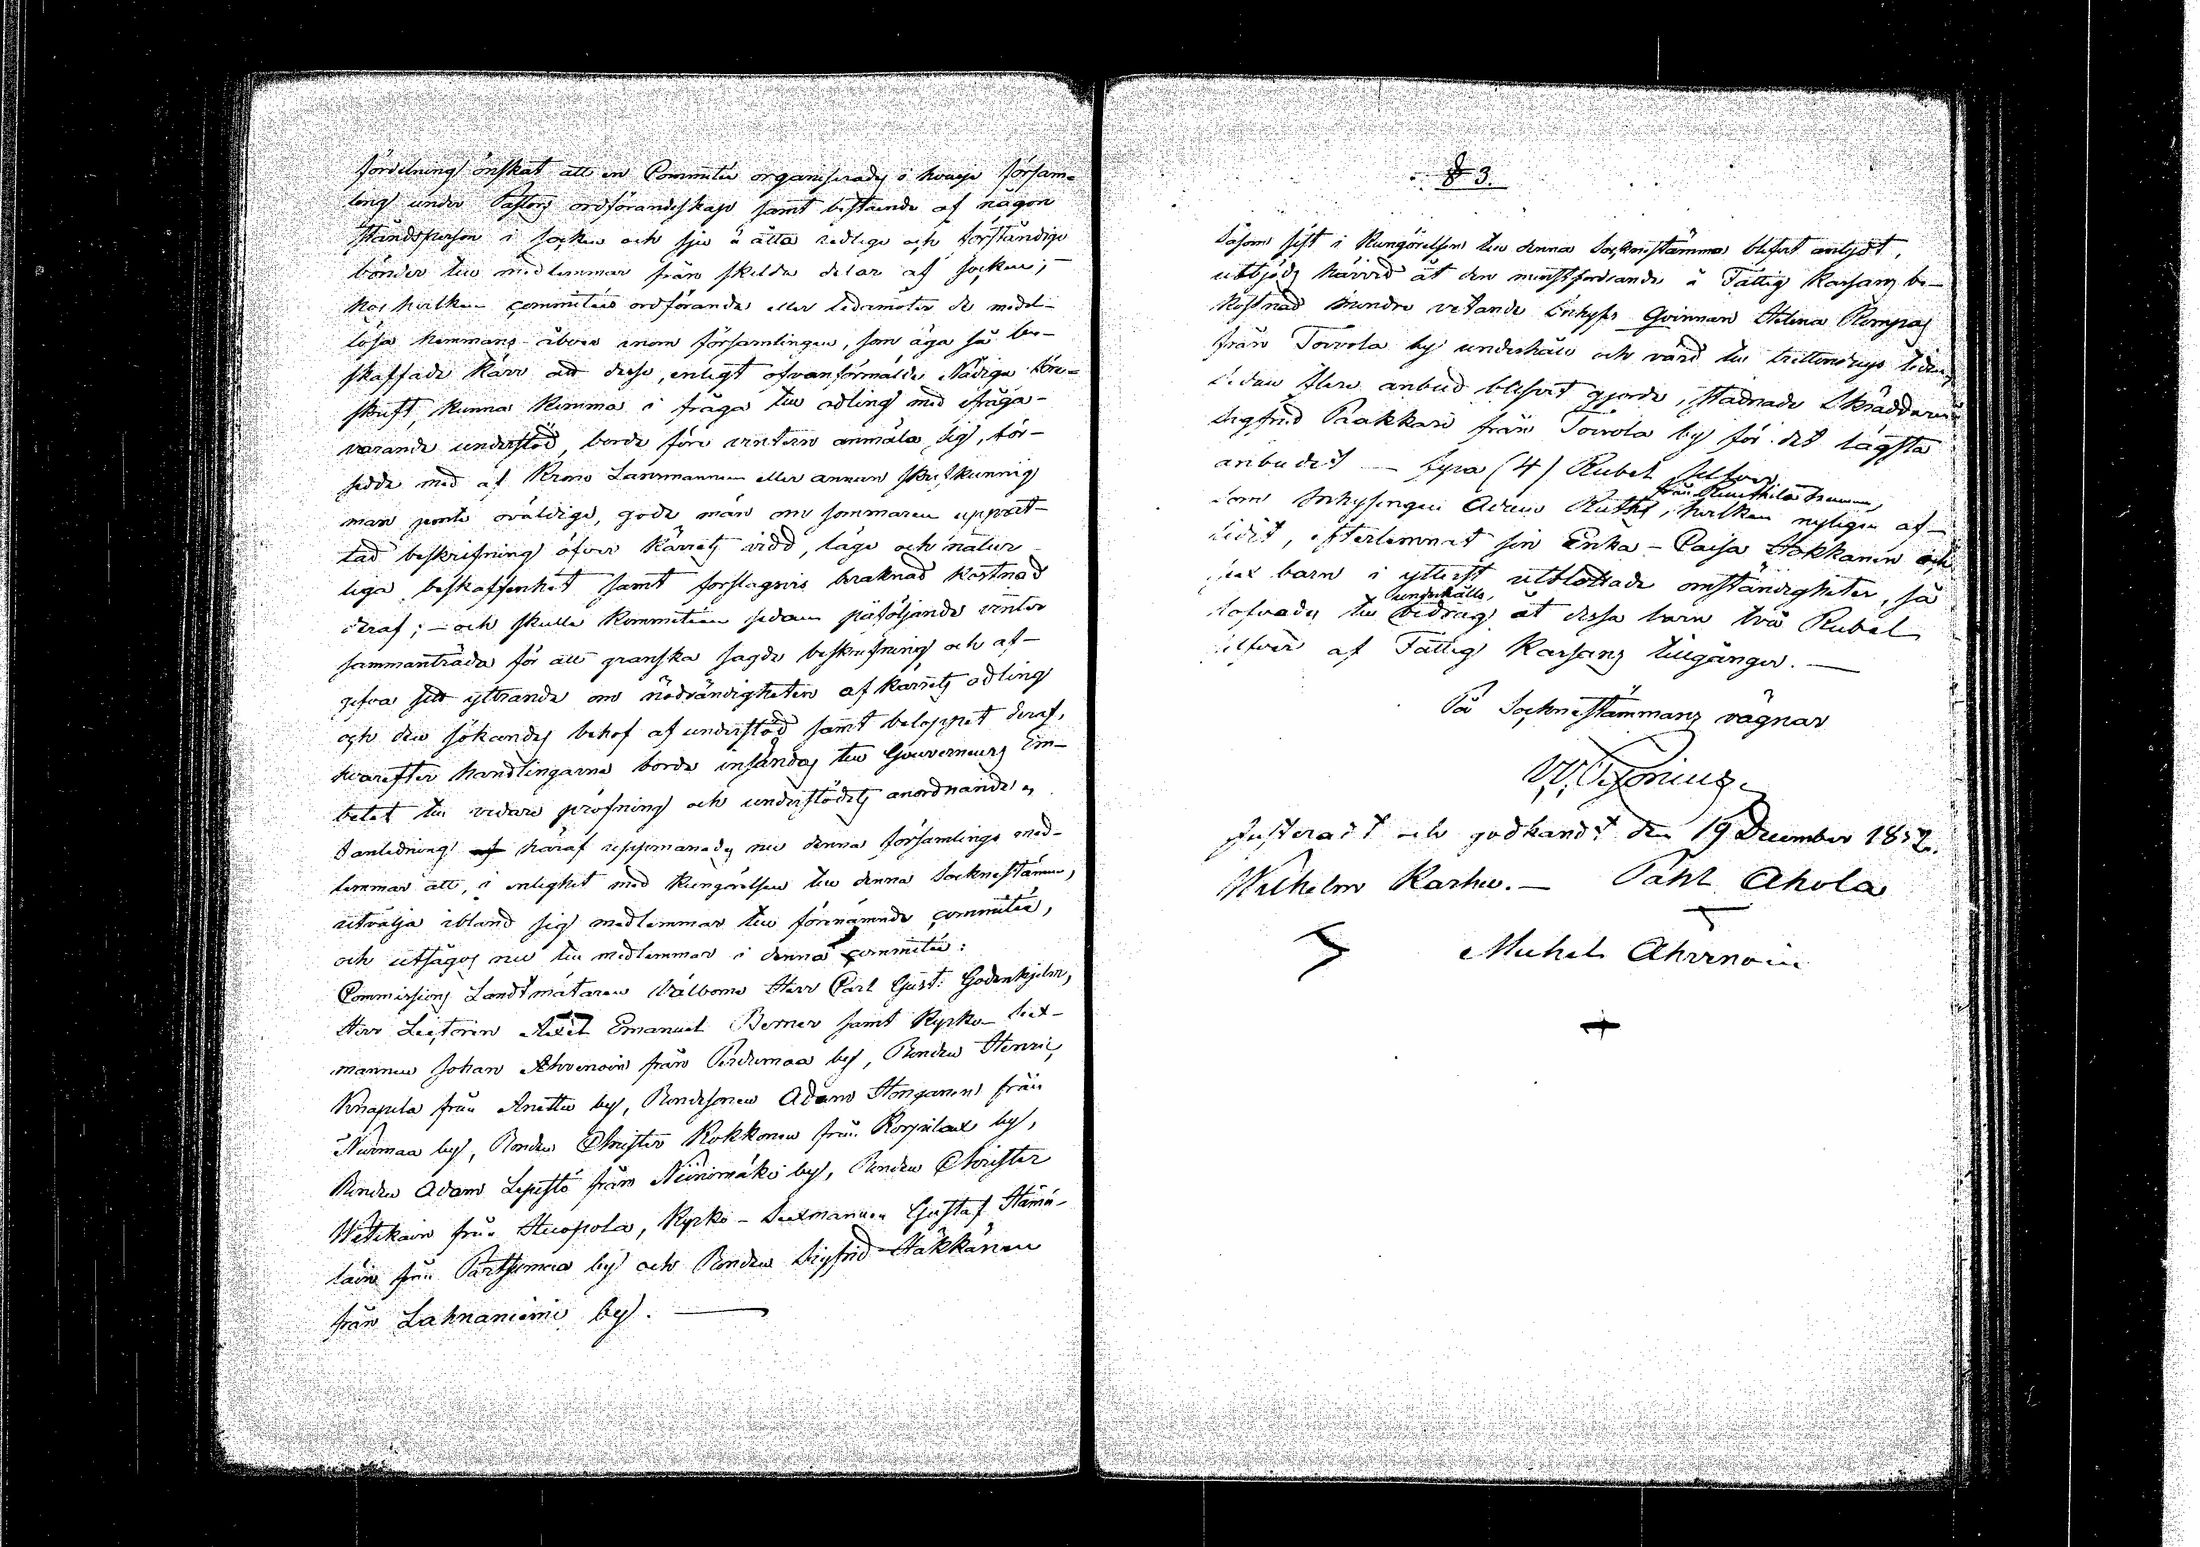 fördelning önskat att en Committée organiserades i hvarje försam-
ling under Pastors ordförandeskap samt bestående af någon
ståndsperson i socken och sju à åtta redlige och förståndige
bönder till medlemmar från skilda delar af socken; –
hos hvilken committées ordförande eller ledamöter de medel-
lösa hemmans-åboer inom församlingen, som äga så be-
skaffade kärr att desse, enligt ofvanförmälde Nådiga före-
skrift, kunna komma i fråga till odling med ifråga-
varande understöd, borde före vintern anmäla sig, för-
sedde med af Krono Länsmannen eller annan skrifkunnig
man jemte oväldige, gode män om sommaren upprät-
tad beskrifning öfver kärrets vidd, läge och natur-
liga beskaffenhet samt förslagsvis beräknad kostnad
deraf; – och skulle Kommitéen sedan påföljande vinter
sammanträda för att granska sagde beskrifning och af-
gifva sitt yttrande om nödvändigheten af kärrets odling
och den sökandes behof af understöd samt beloppet deraf,
hvarefter handlingarne borde insändas till Gouverneurs Em-
betet till vidare pröfning och understödets anordnande
I anledning af häraf uppmanades nu denna församlings med-
lemmar att, i enlighet med kungörelsen till denna Sockenstämma,
utvälja ibland sig medlemmar till förenämnde committée,
och utsågos nu till medlemmar i denna committée:
Commissions Landtmätaren Välborne Herr Carl Gust: Godenhjelm,
Herr Lectoren Axel Emanuel Berner samt Kyrko-Sex-
mannen Johan Ahvenain från Pardumaa by, Bonden Henric
Knapila från Anettu by, Bondesonen Adam Honganen från
Nurmaa by, Bonden Christer Kokkonen från Korpilax by,
Bonden Adam Lepistö från Niinimäki by, Bonden Christer
Wetikain från Huopola, Kyrko-Sexmannen Gustaf Hämä-
läin från Partsimaa by och Bonden Sigfrid Häkkänen
från Lahnaniemi by. —
§ 3.
Såsom sist i Kungörelsen till denna Sockenstämma blifvit antydt,
utbjöds härvid åt den minstfordrande å Fattig Kassans be-
kostnad mindre vetande Inhyses Qvinnan Helena Rompas
från Toivola by underhåll och vård till
sedan flere anbud blifvit gjorde, stadnade Skräddaren
Sigfrid Paakkari från Toivola by för det lägsta
anbudet — fyra (4) Rubel Silfver.
Som Inhysingen Adam Ruth, från hvilken nyligen af-
lidit, efterlemnat sin Enka – Caisa Hokkanen och
sex barn i ytterst utblottade omständigheter, så
lofvades till underhålls, bidrag åt dessa barn två Rubel
silfver af Fattig Kassans tillgångar. —
På Sockenstämmans vägnar
Justeradt och godkändt den 19 December 1852.
Wilhelm Karhu. — Påhl Ahola
Michel Ahvenain